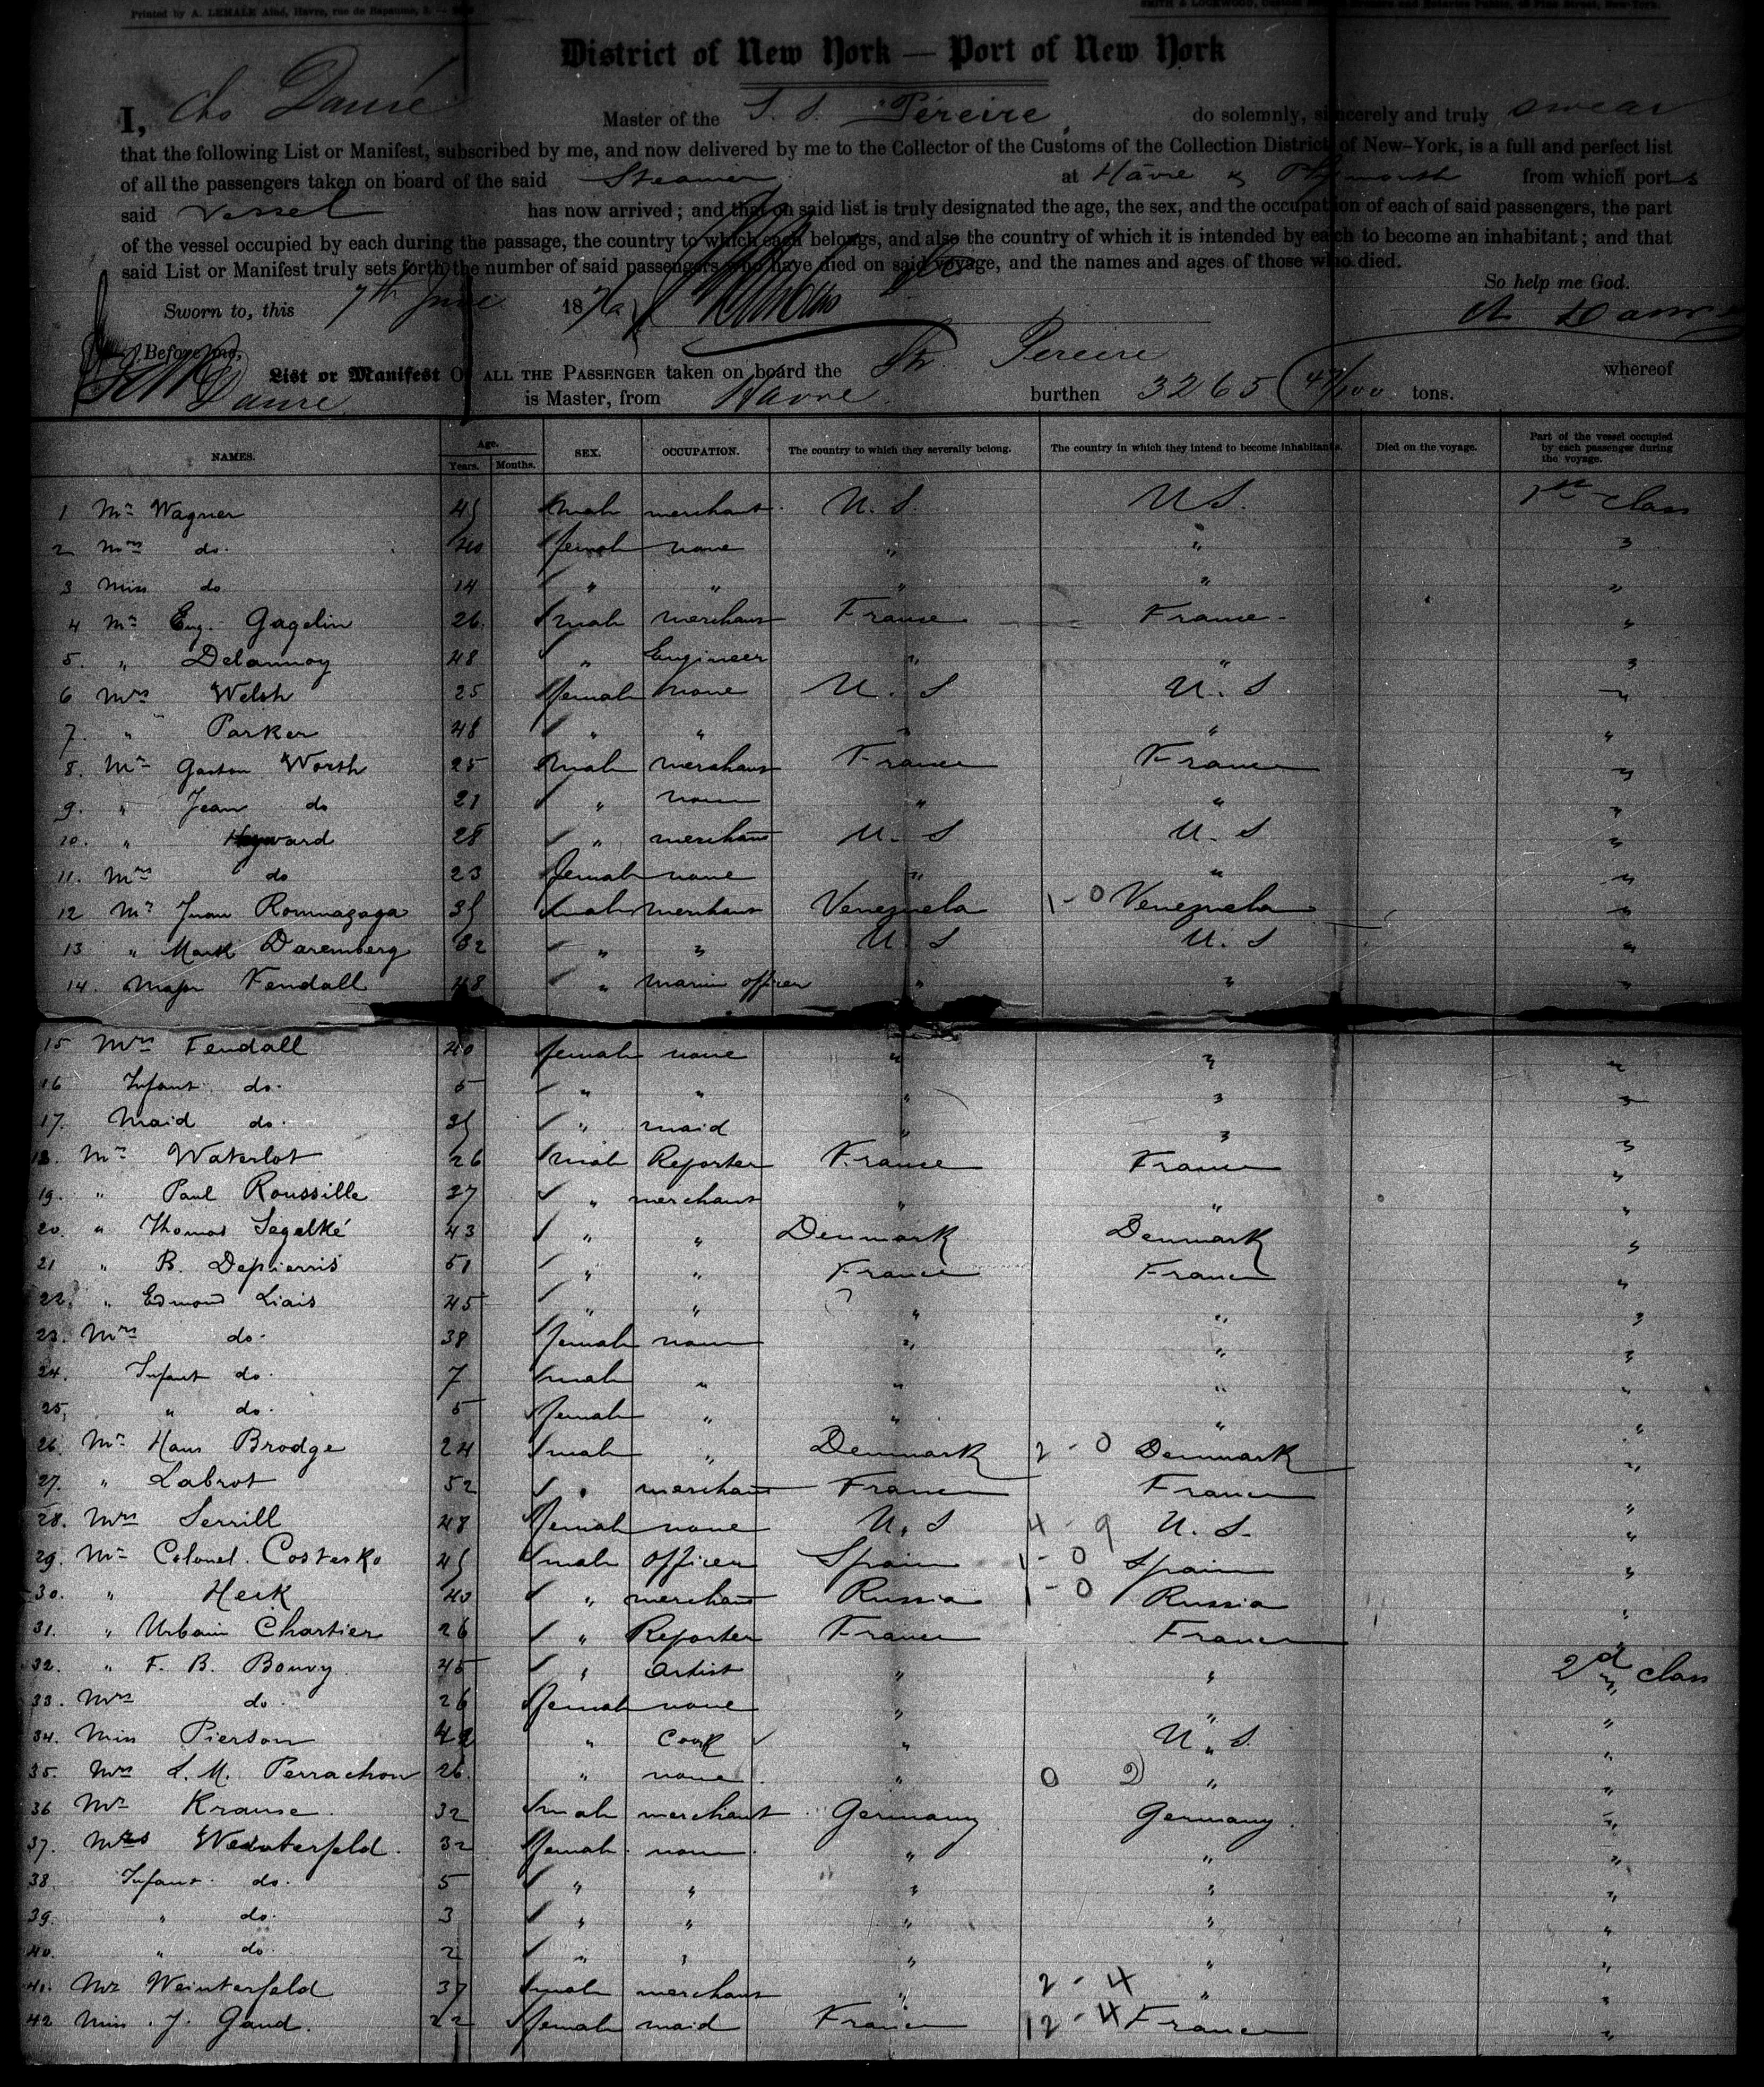 Printed by A. LEMALE Ainé, Havre, rue de Bapaume, 3.
SMITH & LOCKWOOD, Custom Brokers and Notaries Public, Pine Street, New-York.
District of New York — Port of New York
I, Chs Dauré Master of the S. S. Péreire, do solemnly, sincerely and truly swear
that the following List or Manifest, subscribed by me, and now delivered by me to the Collector of the Customs of the Collection District of New-York, is a full and perfect list
of all the passengers taken on board of the said Steamer at Hâvre & Plymouth from which ports
said Vessel has now arrived; and that on said list is truly designated the age, the sex, and the occupation of each of said passengers, the part
of the vessel occupied by each during the passage, the country to which each belongs, and also the country of which it is intended by each to become an inhabitant; and that
said List or Manifest truly sets forth the number of said passengers who have died on said voyage, and the names and ages of those who died.
So help me God.
Sworn to, this 7th June 1876
Before me,
List or Manifest OF ALL THE PASSENGER taken on board the Str. Pereire whereof
Daure is Master, from Havre burthen 3265 47/100 tons.
NAMES. Age. Years. Months. SEX. OCCUPATION. The country to which they severally belong. The country in which they intend to become inhabitants. Died on the voyage. Part of the vessel occupied by each passenger during the voyage.
1 Mr Wagner 45 male merchant U. S. U S. 1st class
2 Mrs do. 40 female none " " "
3 Miss do 14 " " " " "
4 Mr Eug. Gagelin 26 male merchant France France "
5. " Delannoy 48 " Engineer " " "
6 Mrs Welsh 25 female none U. S U. S "
7. " Parker 48 " " " " "
8. Mr Gaston Worth 25 male merchant France France "
9. " Jean do 21 " none " " "
10. " Hayward 28 " merchant U. S U. S "
11. Mrs do 23 female none " " "
12 Mr Juan Romnagaga 35 male merchant Venezuela 1-0 Venezuela "
13 " Mark Daremberg 32 " " U. S U. S "
14. Major Fendall 48 " marin officer " " "
15 Mrs Fendall 40 female none " " "
16 Infant do. 5 " " " " "
17. Maid do. 35 " maid " " "
18. Mr Waterlot 26 male Reporter France France "
19. " Paul Roussille 27 " merchant " " "
20. " Thomas Segelké 43 " " Denmark Denmark "
21 " B. Depierris 51 " " France France "
22. " Edmond Liais 45 " " " " "
23. Mrs do. 38 female none " " "
24. Infant do. 7 male " " " "
25. " do. 5 female " " " "
26. Mr Hans Brodge 24 male " Denmark 2-0 Denmark "
27. " Labrot 52 " merchant France France "
28. Mrs Serrill 48 female none U. S 4-9 U. S. "
29. Mr Colonel Costesko 45 male officer Spain 1-0 Spain "
30. " Heck 40 " merchant Russia 1-0 Russia "
31. " Urbain Chartier 26 " Reporter France France "
32. " F. B. Bouvy 45 " artist " " 2d class
33. Mrs do. 26 female none " " "
34. Miss Pierson 42 " Cook " U. S. "
35. Mrs L. M. Perrachon 26. " none " 0 2 " "
36 Mr Krause 32 male merchant Germany Germany. "
37. Mrs Weinterfeld. 32 female none " " "
38. Infant do. 5 " " " " "
39. " do. 3 " " " " "
40. " do. 2 " " " " "
41. Mr Weinterfeld 37 male merchant " 2-4 " "
42 Miss J. Gaud. 22 female maid France 12-4 France "